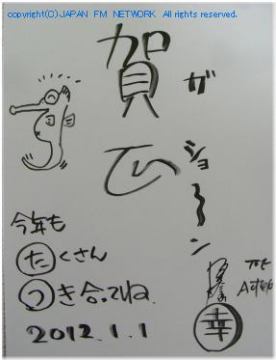 copyright(C)JAPAN FM NETWORK All rights reserved.
賀正
ガショ〜ン
今年も
たくさん
つき合ってね
2012.1.1
幸